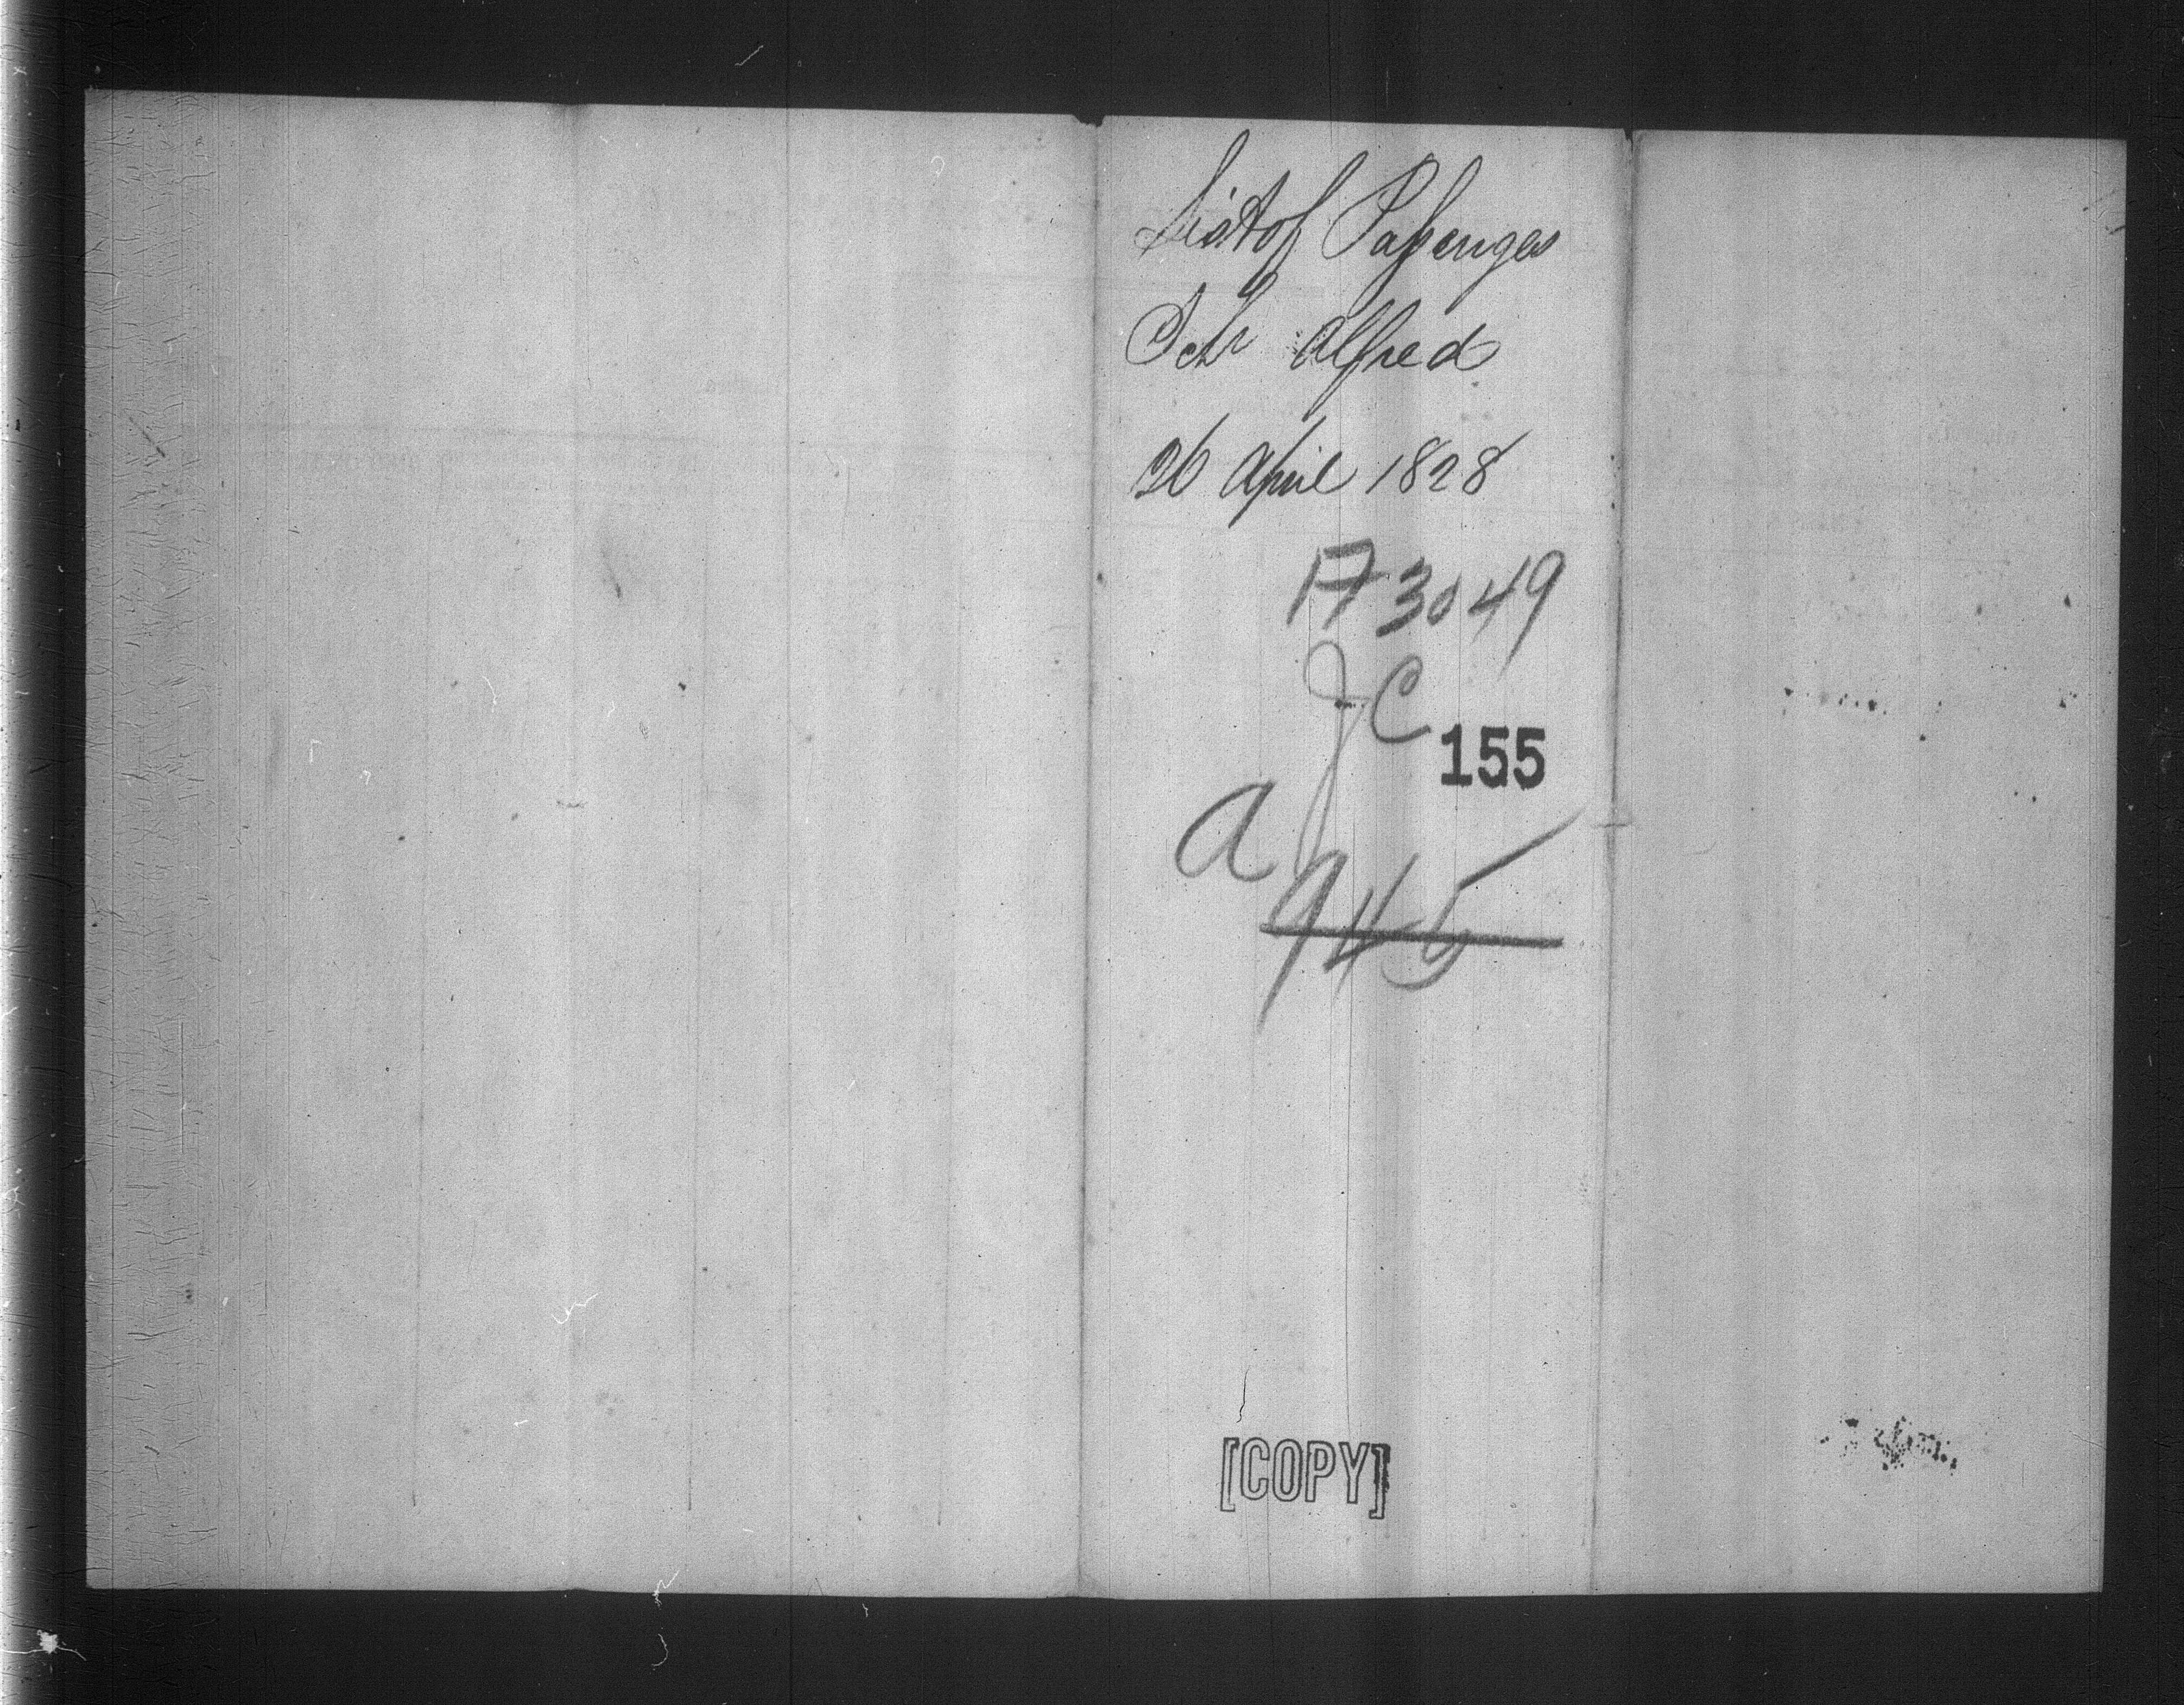 List of Passenges
Schr Alfred
26 April 1828
173049
JC
155
a
945
[COPY]